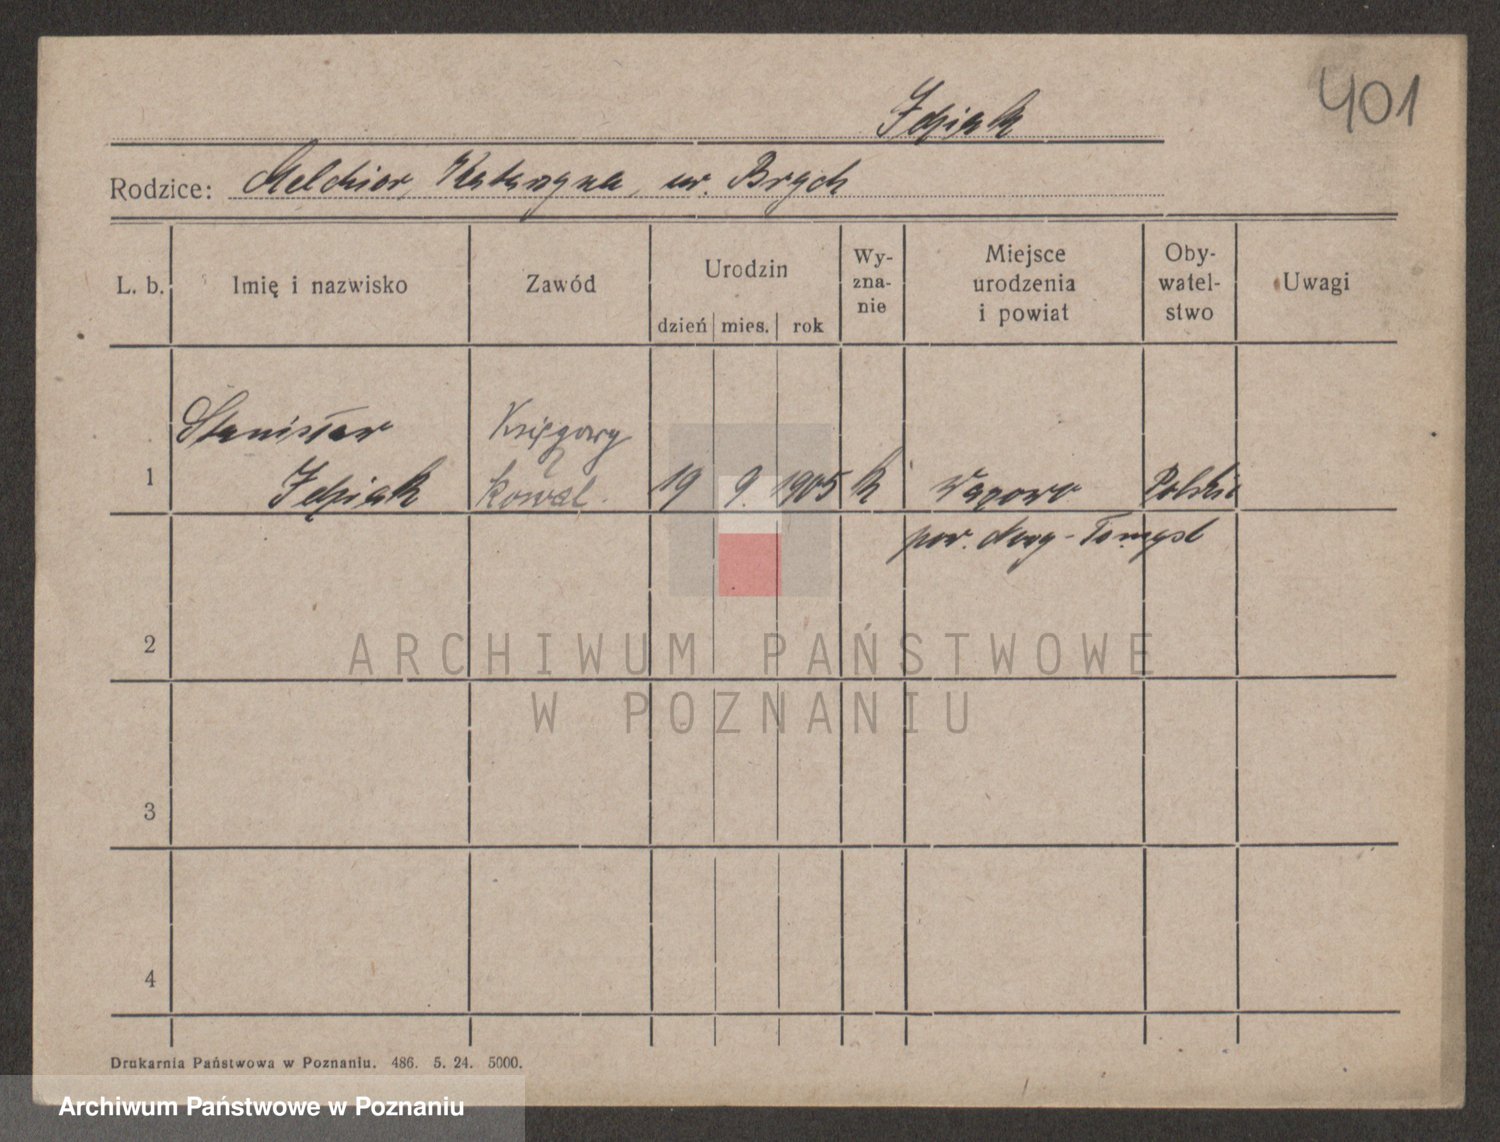 401
Jepiak
Rodzice: Melchior, Katarzyna, ur. Brych
L. b. Imię i nazwisko Zawód Urodzin dzień mies. rok Wy-zna-nie Miejsce urodzenia i powiat Oby-watel-stwo Uwagi
Stanisław Księgowy
1 Jepiak kowal. 19 9. 1905 k Wąsowo Polskie
pow. Nowy-Tomysl
2
ARCHIWUM PAŃSTWOWE
W POZNANIU
3
4
Drukarnia Państwowa w Poznaniu. 486. 5. 24. 5000.
Archiwum Państwowe w Poznaniu